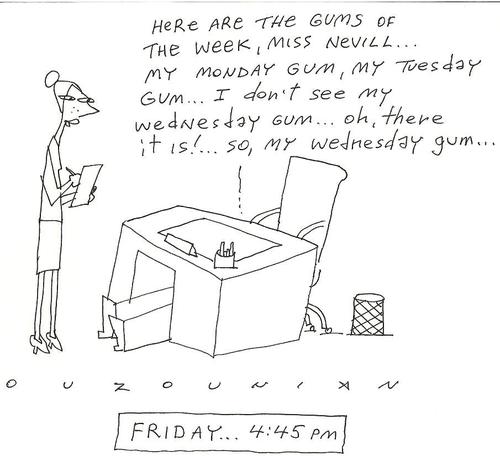 HERE ARE THE GUMS OF
THE WEEK, MISS NEVILL...
MY MONDAY GUM, MY TUESDAY
GUM... I DON'T SEE MY
WEDNESDAY GUM... OH, THERE
IT IS!... SO, MY WEDNESDAY GUM...
OUZOUNIAN
FRIDAY... 4:45 PM